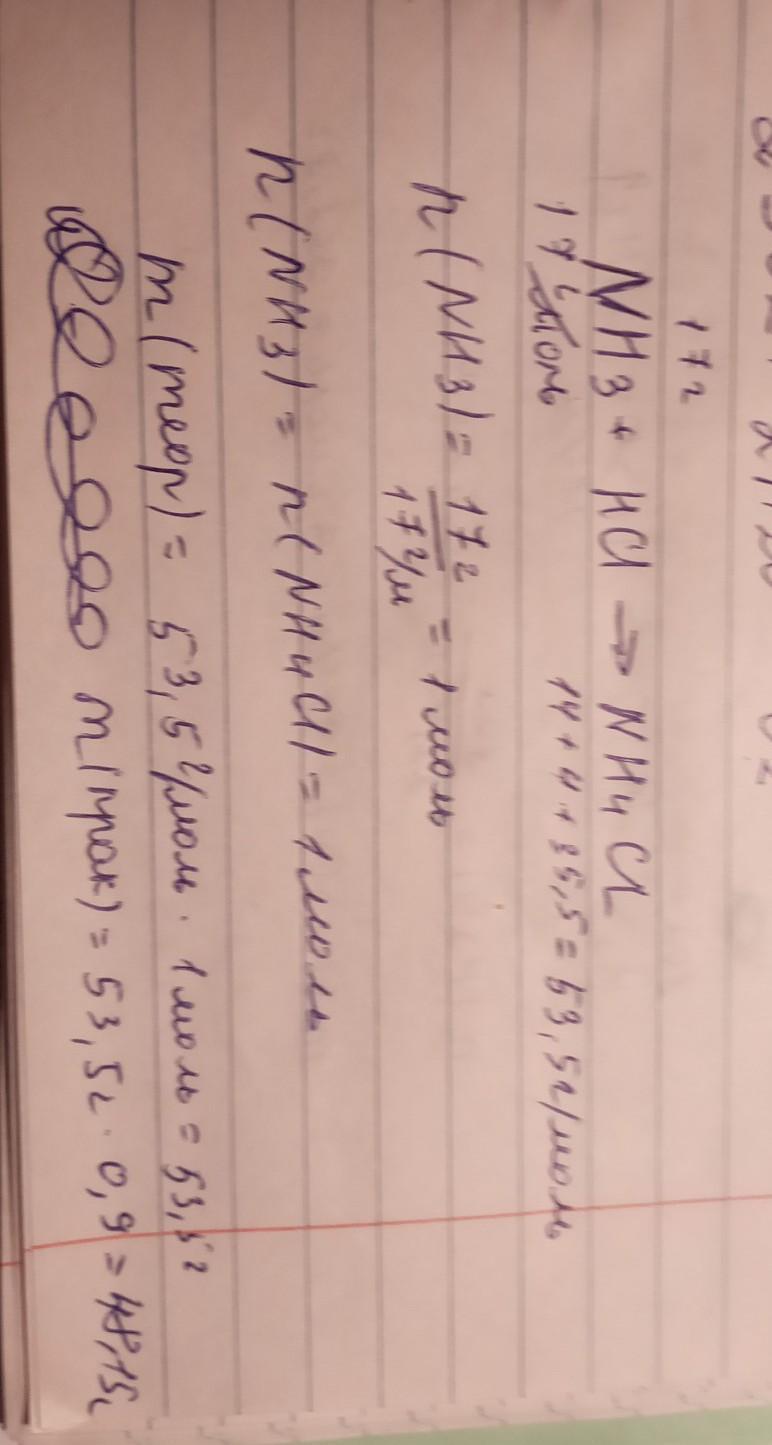 17г
NH3 + HCl → NH4Cl
17г 14+4+35,5=53,5г/моль
n(NH3) = 17г / 17г/м = 1 моль
n(NH3) = n(NH4Cl) = 1 моль
m(теор) = 53,5 г/моль · 1 моль = 53,5г
m(прак) = 53,5г · 0,9 = 48,15г